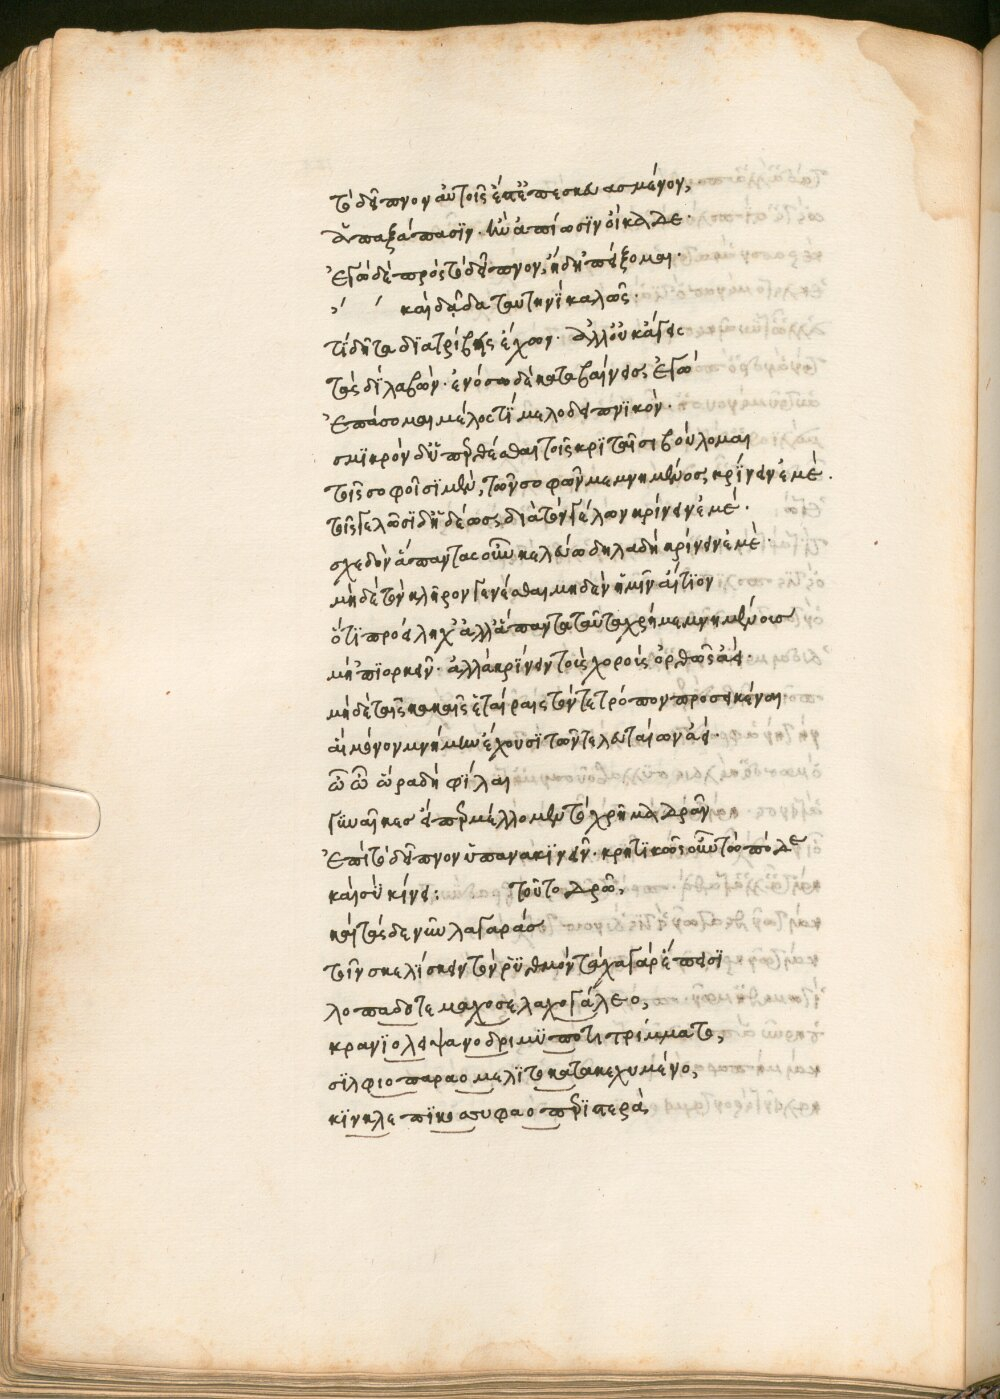 τὸ δεῖπνον αὐτοῖς ἐστ' ἐπεσκευασμένον,
ἅπαξ άπασιν. ἢν ἀπίωσιν οἴκαδε.
Ἐγὼ δὲ πρὸς τὸ δεῖπνον, ἤδη 'πείξομαι.
καὶ δᾷδα ταυτηνὶ καλῶς.
τί δῆτα διατρίβεις ἔχων. ἀλλ' οὐκ ἄγεις
τὰς δὶ λαβών. ἐν ὅσω δὲ καταβαίνεις ἐγὼ
Ἐπάσομαι μέλος τὶ μελοδειπνικόν.
σμικρὸν δ' ὑποθέσθαι τοῖς κριταῖσι βούλομαι
τοῖς σοφοῖσι μὲν, τῶν σοφῶν μεμνημένοις κρίνειν ἐμέ.
τοῖς γελῶσι δ' ἡδέως διὰ τὸν γέλων κρίνειν ἐμέ.
σχεδὸν ἅπαντας οὖν κελεύω δηλαδὴ κρίνειν ἐμέ.
μὴ δὲ τὸν κλῆρον γενέσθαι μηδὲν ἡμῖν αἴτιον
ὅτι προείληχ' ἀλλ' ἅπαντα ταῦτα χρὴ μεμνημένους
μὴ 'πιορκεῖν. ἀλλὰ κρίνειν τοὺς χοροὺς ὀρθῶς ἀεί.
μὴ δὲ ταῖς κακαῖς ἑταίραις τὸν τε τρόπον προσεικέναι
αἳ μόνον μνήμην ἔχουσι τῶν τελευταίων ἀεί.
ὢ ὢ ὥρα δὴ φίλαι
γυναῖκες εἴπερ μέλλομεν τὸ χρῆμα δρᾶν
Ἐπὶ τὸ δεῖπνον ὑπανακινεῖν. κρητικῶς οὖν τὼ πόδε
καὶ σὺ κίνει: τοῦτο δρῶ,
καὶ τάσδε νῦν λαγαρὰς
τοῖν σκελίσκειν τὸν ῥυθμὸν τάχα γὰρ ἔπεισι
λοπαδοτεμαχοσελαχογάλεο,
κρανιολειψανοδριμυποτιτρίμματο,
σιλφιοπαραομελιτοκατακεχυμένο,
κινκλεπικοσσυφαοπεριστερὰ